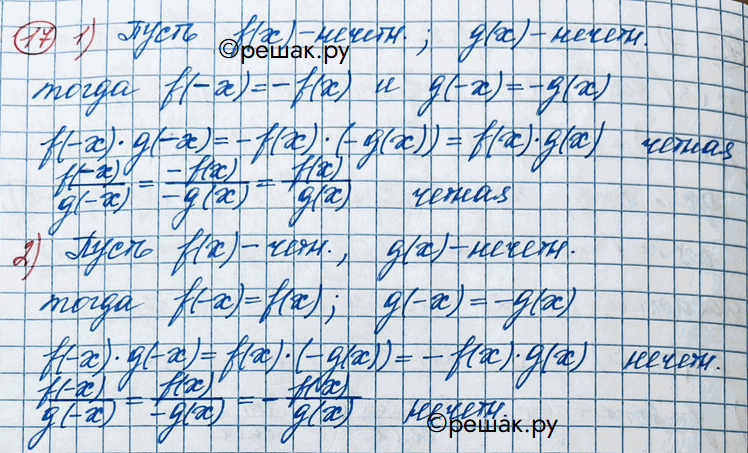 17 1) Пусть f(x) – нечетн. ; g(x) – нечетн.
©решак.ру
тогда f(-x) = -f(x) и g(-x) = -g(x)
f(-x) · g(-x) = -f(x) · (-g(x)) = f(x) · g(x) четная
f(-x)/g(-x) = -f(x)/-g(x) = f(x)/g(x) четная
2) Пусть f(x) – четн., g(x) – нечетн.
тогда f(-x) = f(x) ; g(-x) = -g(x)
f(-x) · g(-x) = f(x) · (-g(x)) = -f(x) · g(x) нечетн.
f(-x)/g(-x) = f(x)/-g(x) = - f(x)/g(x) нечетн.
©решак.ру